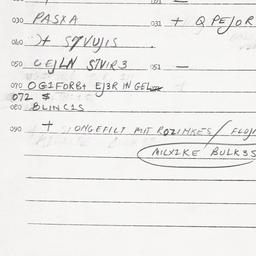 030 PASXA 031 + Q PEJOR
040 )+ S7VUJIS
050 GEJLN S7VIR3 051 —
070 OG1FORB+ EJ3R IN GEL
072 $
080 BLINC1S
090 + ONGEFILT MIT ROZINKES / FLOJM
MILX1KE BULK3S